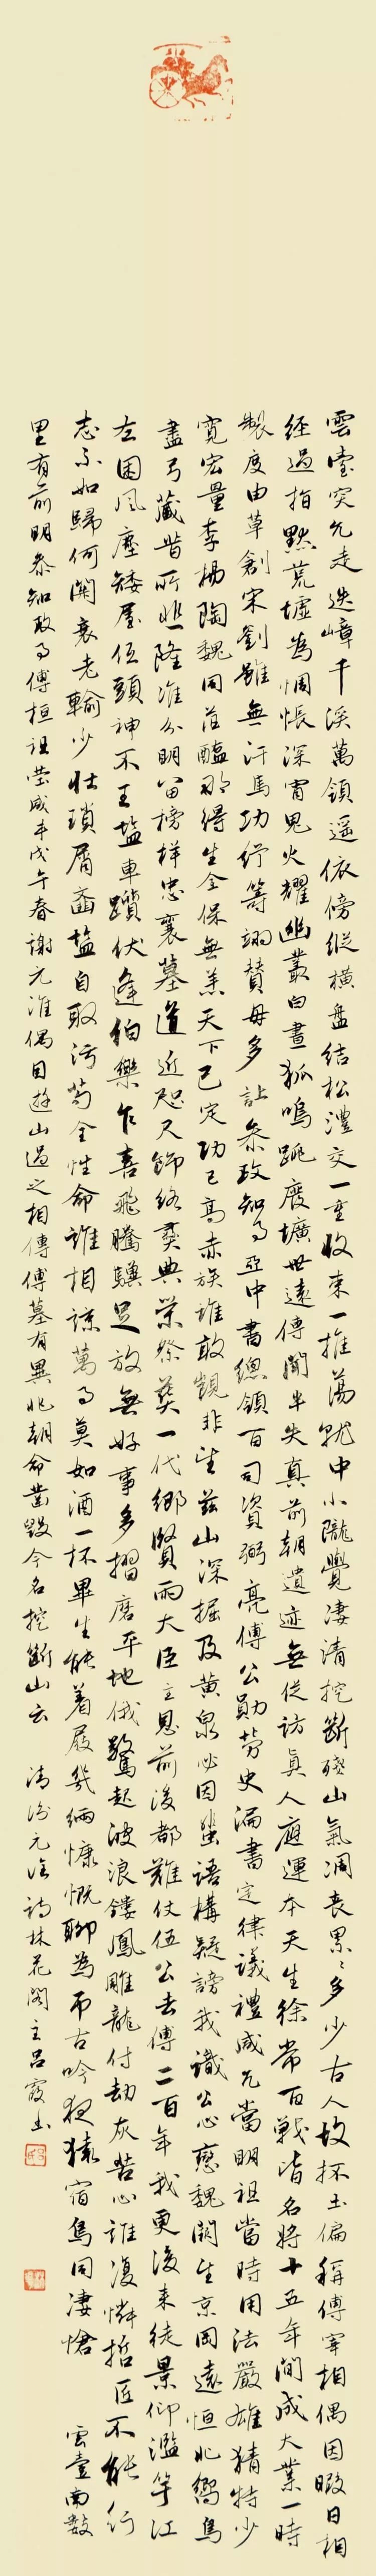 雲台突兀走迭嶂千溪萬領遥依傍縱橫盤結松澧交一重收束一推蕩就中小隴覺凄清挖斷殘山氣凋喪累々多少古人坟抔土偏稱傅宰相偶因暇日相
經過指點荒墟為惆悵深宵鬼火耀幽叢白晝狐鳴跳廢壙世遠傳聞半失真前朝遺迹無從訪真人應運本天生徐常百戰皆名將十五年間成大業一時
製度由草創宋劉雖無汗馬功紆籌翊贊毋多讓參政知事亞中書總領百司資弼亮傅公勛勞史漏書定律議禮咸允當明祖當時用法嚴雄猜特少
寬宏量李楊陶魏同菹醢那得生全保無恙天下已定功已高赤族誰敢覬非望茲山深掘及黃泉必因蜚語構疑謗我識公心戀魏闕生京岡遠恒北嚮鳥
盡弓藏昔所悲隆準分明留榜樣忠襄墓道近咫尺飾終奠典榮祭葬一代鄉賢兩大臣主恩前後都難仗伍公去傅二百年我更後來徒景仰濫竽江
左困風塵矮屋低頭神不王鹽車躓伏逢伯樂乍喜飛騰驥足放無好事多摺磨平地俄驚起波浪鏤鳳雕龍付劫灰苦心誰復憐哲匠不能行
志不如歸何關衰老輸少壯瑣屑齒鹽自取污苟全性命誰相諒萬事莫如酒一杯畢生能着屐幾緉慷慨聊為吊古吟夜猿宿鳥同凄愴 雲臺南數
里有前明參知政事傅桓祖塋咸丰戊午春謝元淮偶因游山過之相傳傅墓有異兆朝命凿毀今名挖斷山云 清謝元淮詩林花閣主呂霞書